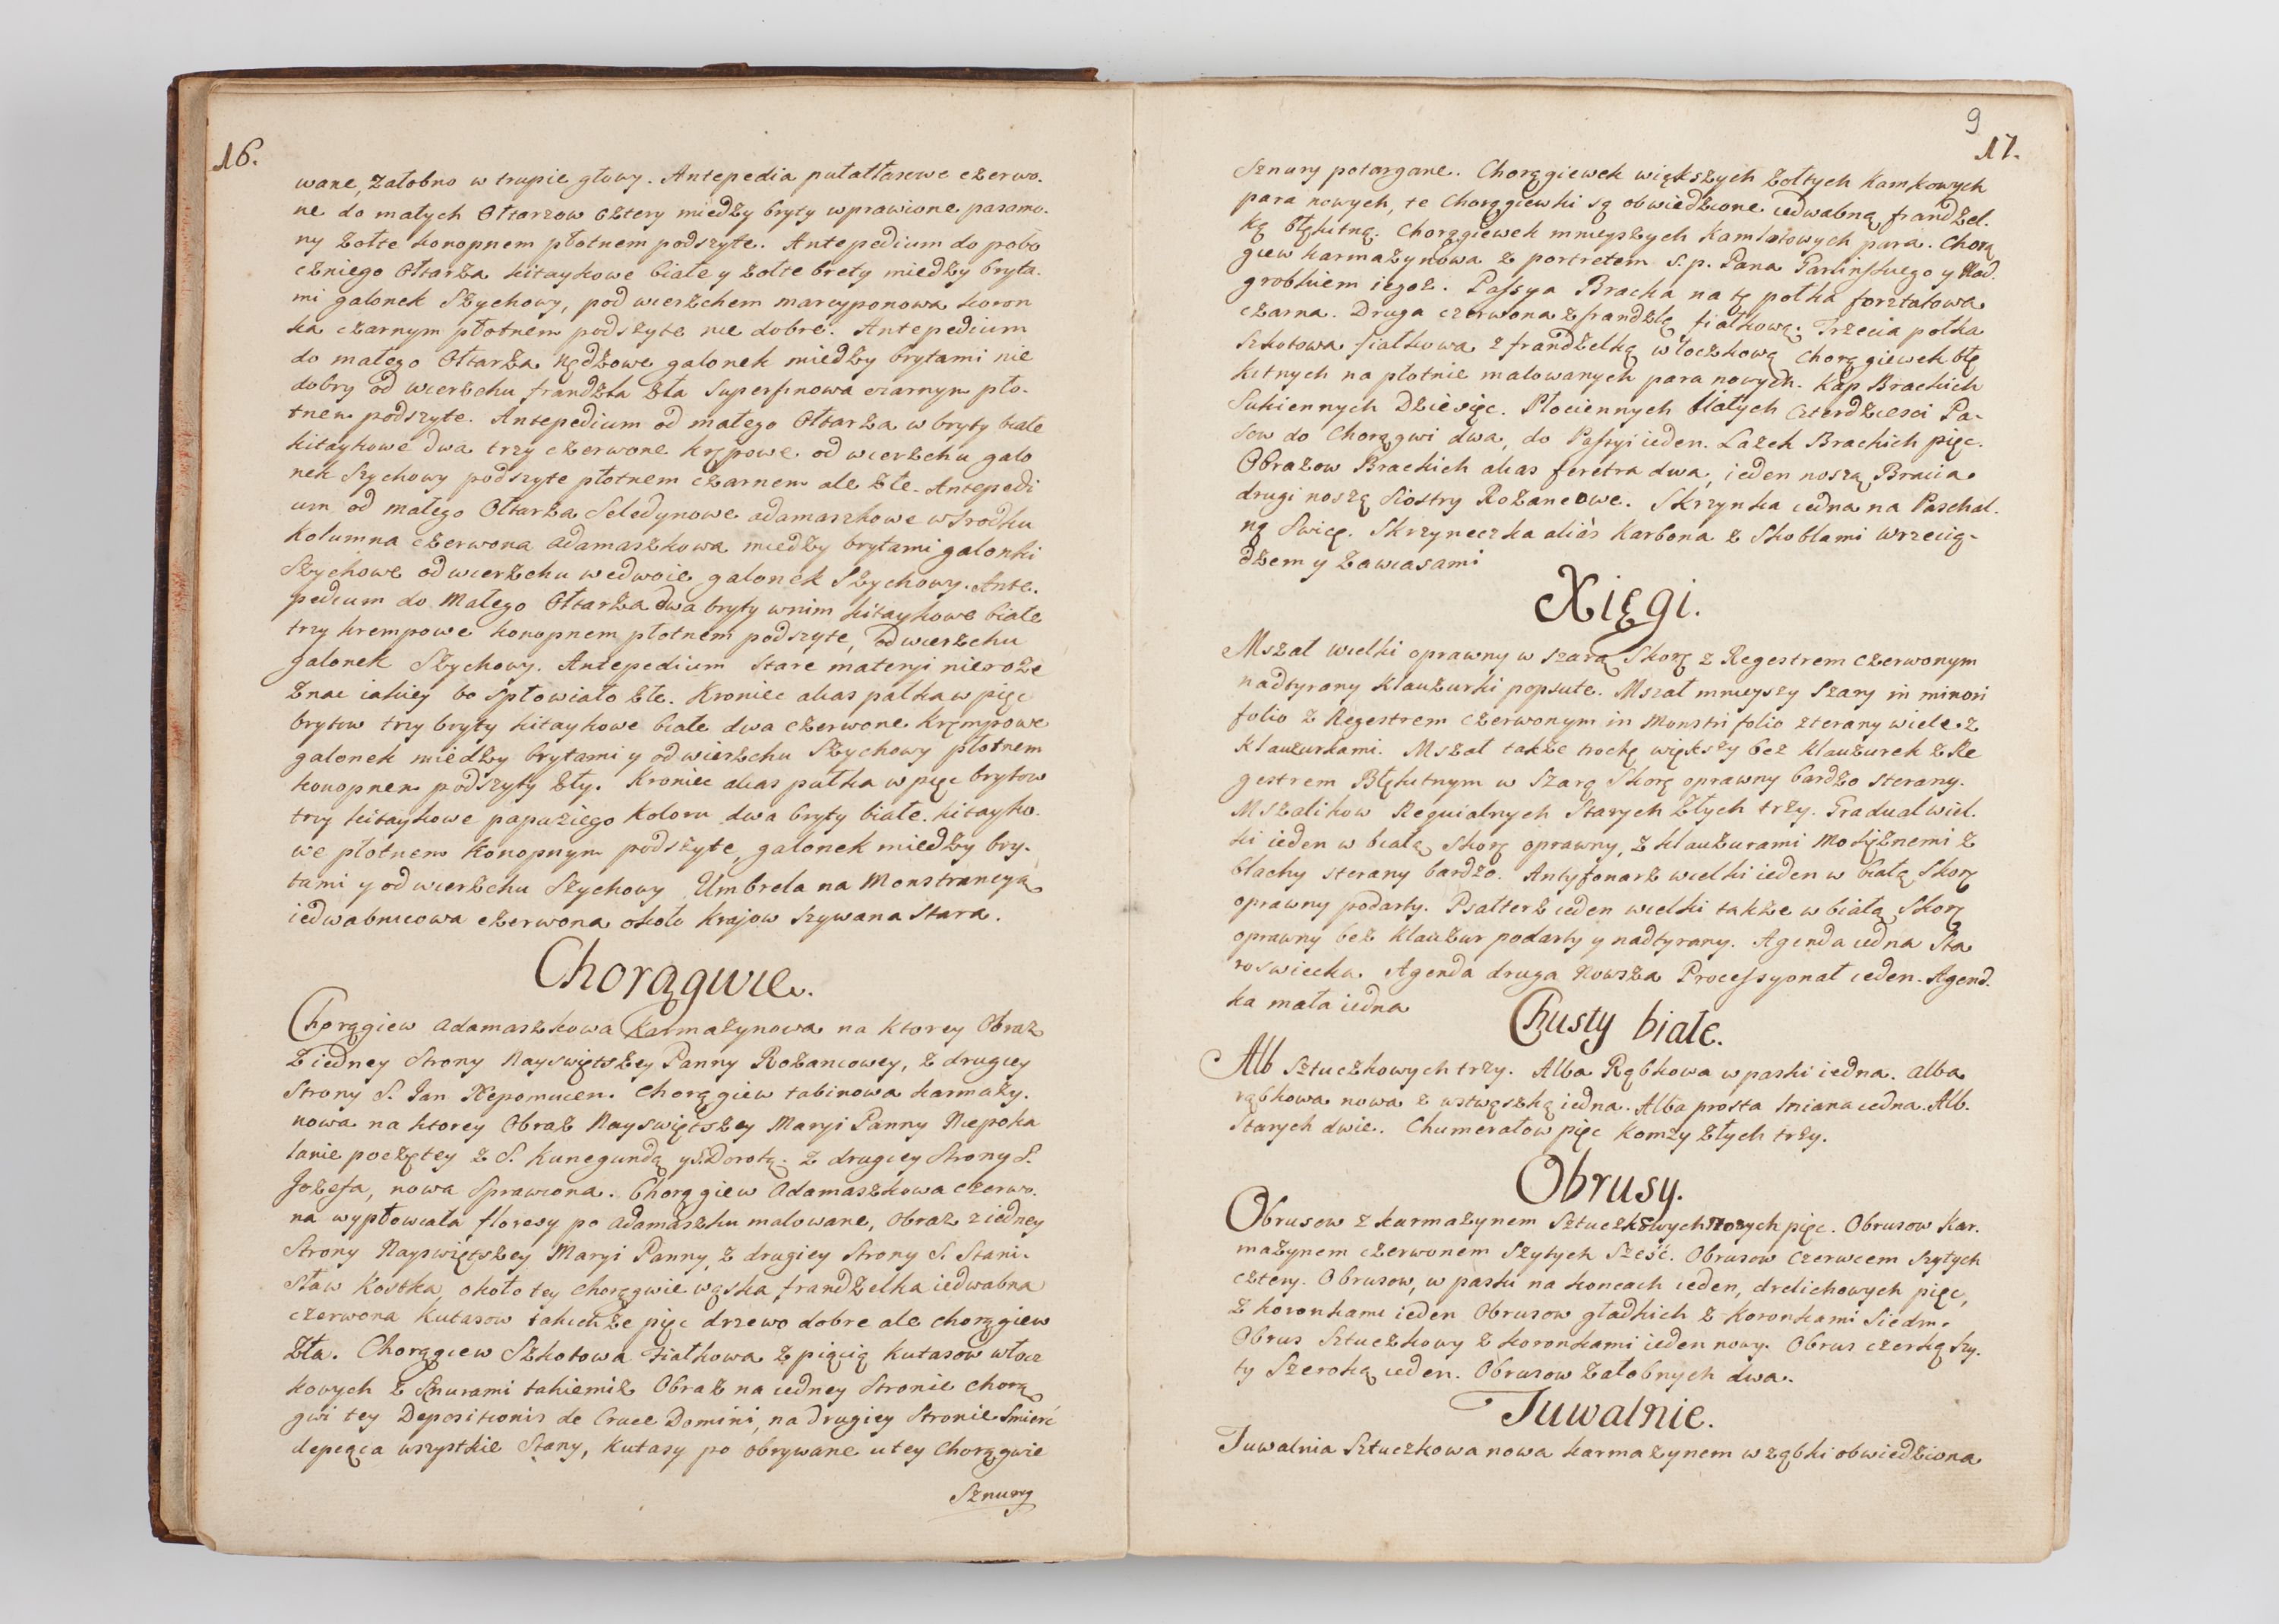 16.
wane, Załobno w trupie głowy. Antepedia pułatłasowe czerwo.
ne do małych Ołtarzow cztery miedzy bryty wprawione pasamo.
ny żołte konopnem płotnem podszyte. Antepedium do pobo
cżniego Ołtarża kitaykowe białe y żołte brety miedży bryta.
mi galonek Szychowy, pod wierżchem marcyponowa koron
ka czarnym płotnem podszyte nie dobre. Antepedium
do małego Ołtarża Kędżowe galonek miedży brytami nie
dobry od wierżchu frandżla żła Superfinowa czarnym pło.
tnem podszyte. Antepedium od małego Ołtarża w bryty białe
kitaykowe dwa trzy czerwone krępowe od wierżchu galo
nek Szychowy podszyte płotnem cżarnem ale żłe. Antepedi
um od małego Ołtarża Seledynowe adamaszkowe w srodku
Kolumna cżerwona adamaszkowa miedży brytami galonki
Szychowe od wierżchu wedwoie galonek Szychowy. Ante.
pedium do Małego Ołtarża dwa bryty wnim kitaykowe białe
trzy krempowe konopnem płotnem podszyte, od wierżchu
galonek Szychowy. Antepedium stare materyi nieroze
żnac iakiey bo spłowiało żłe. Kroniec alias pałka w pięc
brytow trzy bryty kitaykowe białe dwa czerwone Kręmpowe
galonek miedży brytami y od wierżchu Szychowy płotnem
konopnem podszyty żły. Kroniec alias pułka w pięc brytow
trzy kitaykowe papużiego Koloru dwa bryty białe kitayko.
we płotnem Konopnym podszyte, galonek miedży bry.
tami y od wierżchu Szychowy. Umbrela na Monstrancyą
iedwabnicowa czerwona około krajow szywana stara.
Chorągwie.
Chorągiew adamaszkowa Karmażynowa na ktorey Obraz
Z iedney Strony Nayswiętszey Panny Rożancowey, z drugiey
Strony S. Jan Nepomucen. Chorągiew tabinowa karmaży.
nowa na ktorey Obraz Nayswiętszey Maryi Panny Niepoka
lanie pocżętey z S. Kunegundą y S. Dorotą. z drugiey Strony S.
Jozefa, nowa sprawiona. Chorągiew Adamaszkowa czerwo.
na wypłowiała floresy po adamaszku malowane, Obraz z iedney
Strony Nayswiętszey Maryi Panny, z drugiey Strony S. Stani.
sław Kostka, około tey chorągwie wąska frandżelka iedwabna
czerwona Kutasow takichże pięc drzewo dobre ale chorągiew
żła. Chorągiew Szkotowa fiałkowa z piącią Kutasow włocz
kowych z Sznurami takiemiż Obraz na iedney stronie chorą
gwi tey Depositionis de Cruce Domini, na drugiey stronie Smierć
depcąca wszystkie Stany, Kutasy po obrywane u tey Chorągwie
Sznury
9
17.
Sznury potargane. Chorągiewek większych żołtych Kamkowych
para nowych, te Chorągiewki są obwiedzione iedwabną frandżel.
ką błękitną. Chorągiewek mnieyszych Kamlotowych para. Chorą
giew karmażynowa z portretem S. p. Pana Garlinskiego y Nad.
grobkiem iegoż. Passya Bracka na tę połka forsztatowa
cżarna. Druga czerwona z frandżlą fiałkową. Trzecia połka
Szkotowa fiałkowa z frandżelką włoczkową Chorągiewek błę
kitnych na płotnie malowanych para nowych. Kap Brackich
Sukiennych Dziesięc. Płociennych białych Czterdżiesci Pa-
sow do Chorągwi dwa, do Passyi ieden. Lasek Brackich pięc.
Obrazow Brackich alias feretra dwa, ieden noszą Bracia
drugi noszą Siostry Rożancowe. Skrzynka iedna na Paschal.
ną Swicę. Skrzyneczka aliàs Karbona z Skoblami wrzecią-
dżem y zawiasami
Xięgi.
Mszał wielki oprawny w szarą Skorę z Regestrem czerwonym
nadtyrany Klauzurki popsute. Mszał mnieyszy Szary in minori
folio z Regestrem czerwonym in Monstri folio sterany wiele z
Klauzurkami. Mszał także trochę większy bez klauzurek z Re
gestrem Błękitnym w Szarą Skorę oprawny bardzo sterany.
Mszalikow Requialnych Starych złych trzy. Gradual wiel.
ki ieden w białą Skorę oprawny, z klauzurami Mosiężnemi z
blachy sterany bardzo. Antyfonarz wielki ieden w białą Skorę
oprawny podarty. Psalterz ieden wielki także w białą Skorę
oprawny bez Klauzur podarty y nadtyrany. Agenda iedna Sta
roswiecka. Agenda druga Nowsza Processyonał ieden. Agend.
ka mała iedna
Chusty białe.
Alb Sztuczkowych trzy. Alba Rąbkowa w paski iedna. alba
rąbkowa nowa z wstwęszką iedna. Alba prosta lniana iedna. Alb.
Starych dwie. Chumerałow pięc Komży złych trzy.
Obrusy.
Obrusow z karmażynem Sztuczkowych pięc. Obrusow Kar.
mażynem czerwonem Szytych Sześć. Obrusow Czerwcem szytych
cztery. Obrusow, w paski na koncach ieden, drelichowych pięc,
z koronkami ieden Obrusow gładkich z Koronkami Siedm.
Obrus Sztuczkowy z koronkami ieden nowy. Obrus czerką szy.
ty Szeroką ieden. Obrusow żałobnych dwa.
Tuwalnie.
Tuwalnia Sztuczkowa nowa karmażynem w żąbki obwiedziona